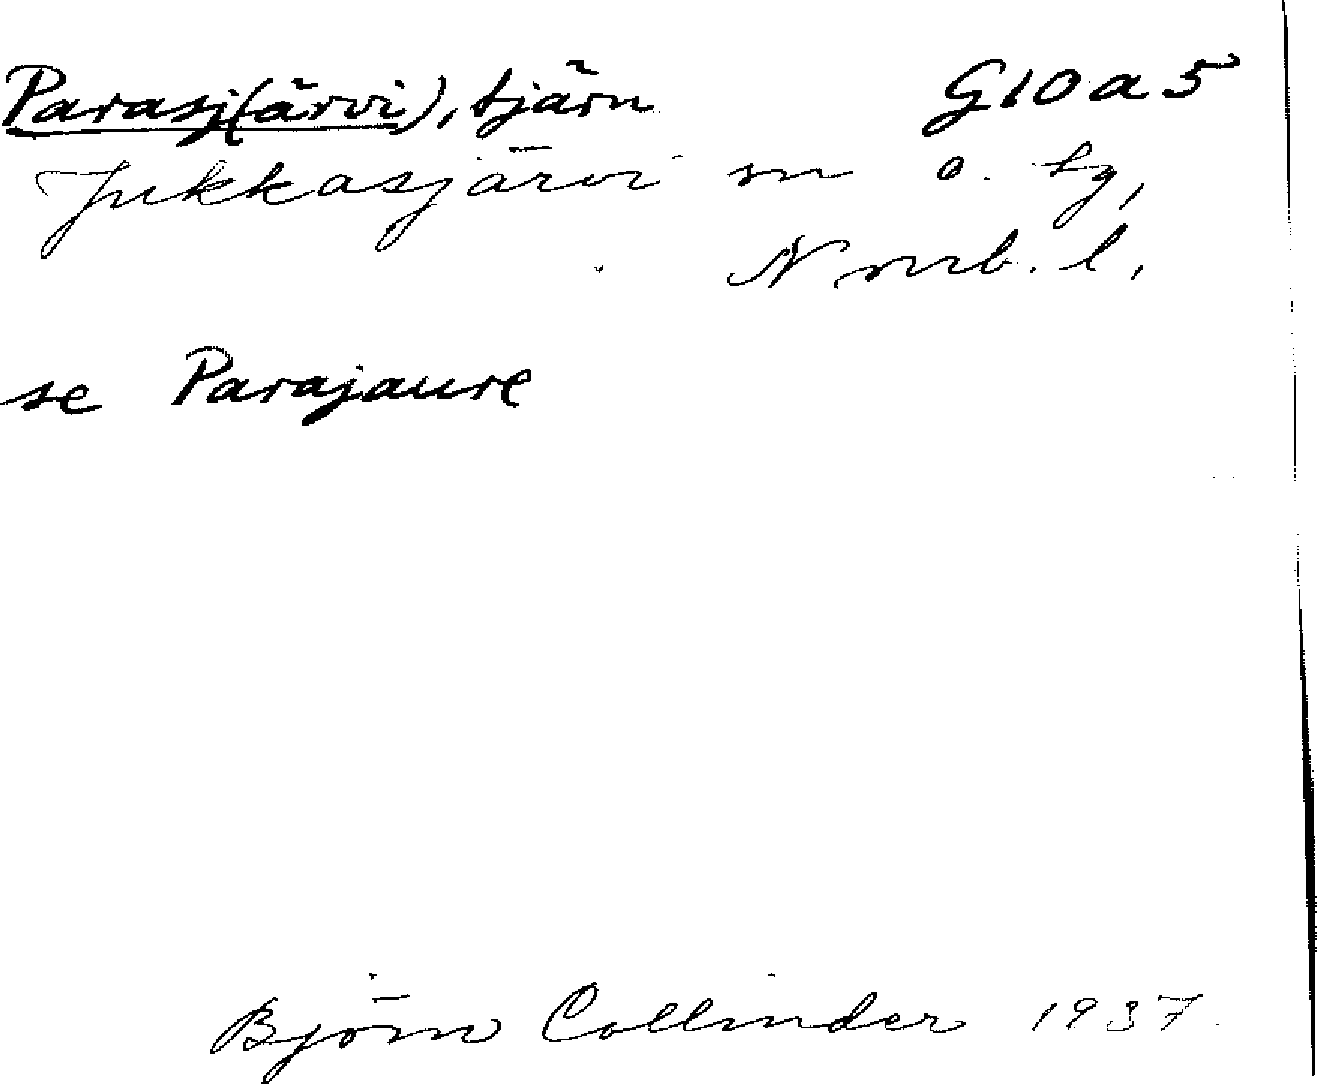 Parasj(ärvi), tjärn G10a5
Jukkasjärvi sn o. tg,
Norrb. l.
se Parajaure
Björn Collinder 1937